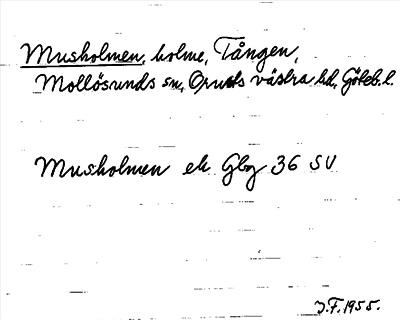 Musholmen, holme, Tången,
Mollösunds sn, Orusts västra hd, Göteb. l.
Musholmen ek Gbg 36 SV
J.F. 1955.